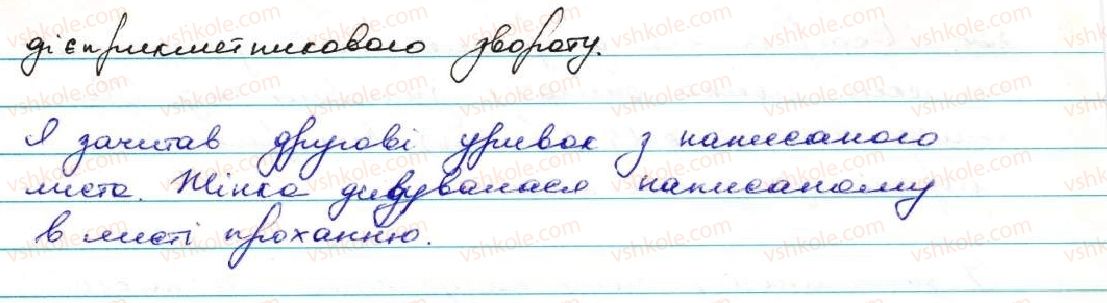 дієприкметникового звороту.
Я зачитав другові уривок з написаного
листа. Жінка дивувалася написаному
в листі проханню.